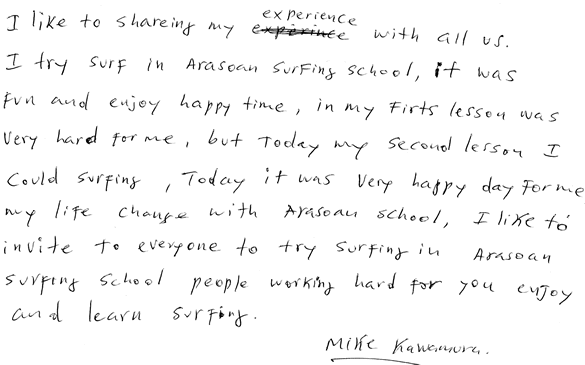 I like to shareing my experience with all us.
I try surf in Arasoan surfing school, it was
fun and enjoy happy time, in my Firts lesson was
very hard for me, but Today my second lesson I
Could surfing, Today it was very happy day for me
my life change with Arasoan school, I like to
invite to everyone to try surfing in Arasoan
surfing school people working hard for you enjoy
and learn surfing.
Mike Kawamura.